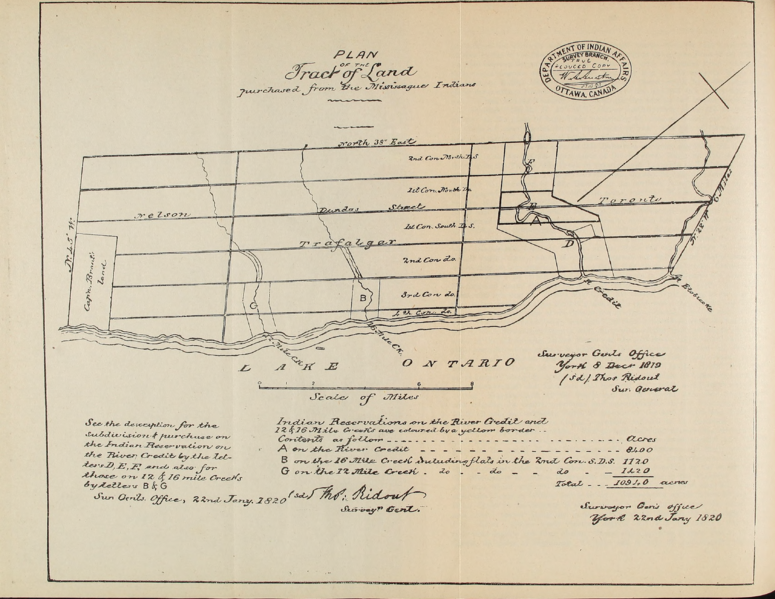 PLAN
OF THE
Tract of Land
purchased from the Missisague Indians
DEPARTMENT OF INDIAN AFFAIRS
SURVEY BRANCH
OTTAWA, CANADA
North 38° East
2nd Con. North D.S
1st Con. North D.S
Nelson
Dundas Street
Toronto
1st Con. South D.S.
Trafalgar
2nd Con do.
3rd Con do.
4th Con do.
N 45° W
Capn. Brant's
land.
E
A
D
B
G
R. Credit
R. Etobicoke
12 Mile Ck.
16 Mile Ck.
LAKE ONTARIO
Scale of Miles
Surveyor Genls Office
York 8 Decr 1819
(Sd) Thos Ridout
Sur. General
See the description for the
subdivision & purchase on
the Indian Reservation on
the River Credit by the let-
ters D, E, F, and also for
those on 12 & 16 mile Creeks
by letters B & G
Sur. Genls. Office, 22nd Jany. 1820 (sd) Thos: Ridout
Surveyr Genl.
Indian Reservations on the River Credit and
12 & 16 Mile Creeks are coloured by a yellow border
Contents as follow Acres
A on the River Credit
B on the 16 Mile Creek including flats in the 2nd Con. S.D.S. 1120
G on the 12 Mile Creek do do do 1420
Total 10940 acres
Surveyor Gen's office
York 22nd Jany 1820